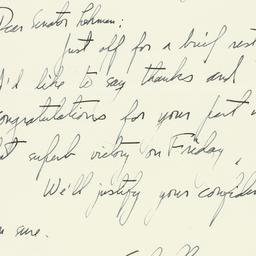 Dear Senator Lehman:
Just off for a brief rest
I'd like to say thanks and
congratulations for your part
superb victory on Friday,
We'll justify your
sure.